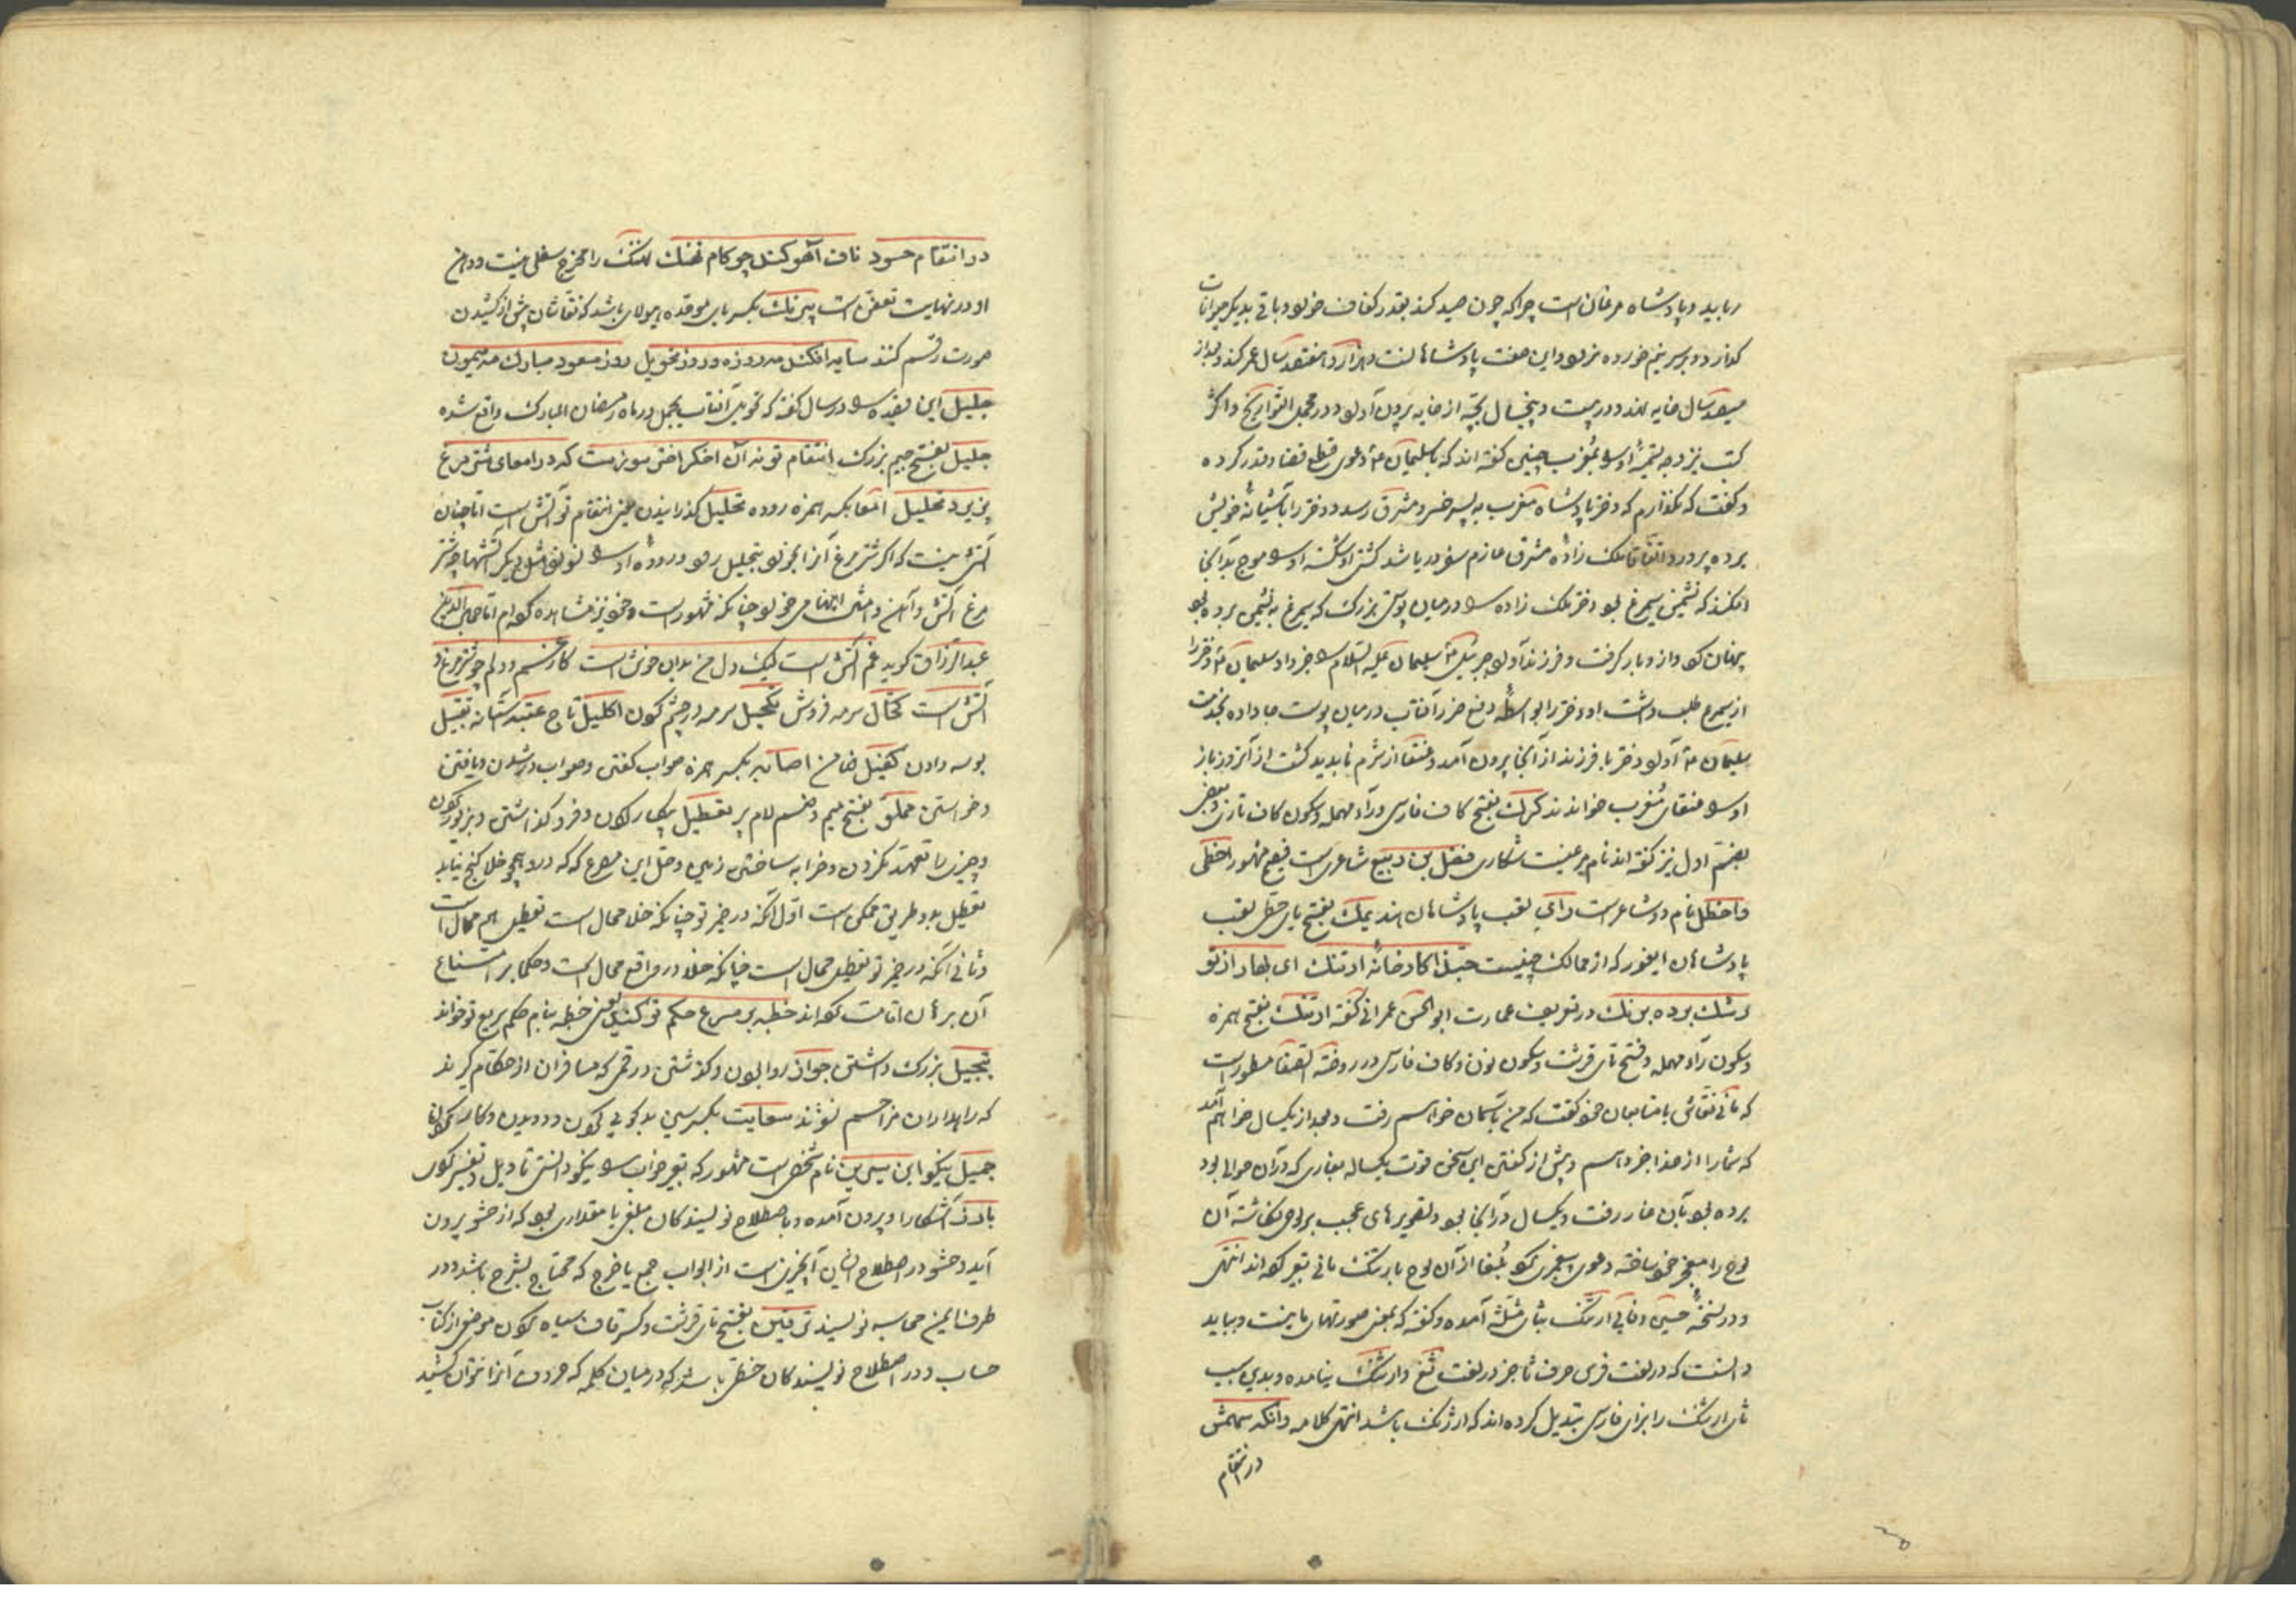 رباید و پادشاه مرغان است چراکه چون صید کند بقدر کفاف خورد و باقی بدیگر حیوانات
کذارد و بر سر نیم خورده نرود و این صفت پادشاهانست و هزار و هفتصد سال عمر کند و بعد از
سیصد سال خایه نهد و در بیست و پنج سال بچه از خایه بیرون آورد و در مجمل التواریخ و اکثر
کتب نیز وجه تسمیهٔ او بمغرب چنین کفته اند که با سلیمان ع دعوی قطع قضا و قدر کرده
و کفت که نکذارم که دختر پادشاه مغرب به پسر خسرو مشرق رسد و دختر را بآشیانهٔ خویش
برده پرورد اتفاقا ملک زادهٔ مشرق عازم سفر دریا شد کشتی او شکسته او را موج بدآنجا
افکند که نشیمن سیمرغ بود دختر ملک زاده را در میان پوستی بزرک که سیمرغ به نشیمن برده بود
پنهان کرد و از و بار کرفت و فرزند آورد جبرئیل ع سلیمان علیه السلام را خبر داد سلیمان ع دختر را
از سیمرغ طلب داشت او دختر را بواسطهٔ دفع ضرر آفتاب در میان پوست جا داده بخدمت
سلیمان ع آورد دختر با فرزند از آنجا بیرون آمد و عنقا از شرم ناپدید کشت از آنروز باز
او را عنقای مُغرب خوانند کرک بفتح کاف فارسی و راء مهمله و سکون کاف تازی و بعضی
بضم اول نیز کفته اند نام مرغیست شکاری فضل بن ربیع شاعری است فصیح مشهور اخطی
و اخطل نام دو شاعر است رای لقب پادشاهان هند یمک بفتح یای حطی لقب
پادشاهان ایغور که از ممالک چینست حبذا کارخانهٔ ارتنک ای بهار از تو
رشک برده برنک در تعریف عمارت ابوالحسن عمرانی کفته ارتنک بفتح همزه
و سکون راء مهمله و فتح تای قرشت و سکون نون و کاف فارسی در روضة الصفا مسطور است
که مانی نقاش با متابعان خود کفت که من بآسمان خواهم رفت و بعد از یکسال خواهم آمد
که شما را از خدا خبر دهم و پیش از کفتن این سخن قوت یکساله بغاری که در آن حوالی بود
برده بود بآن غار رفت و یکسال در آنجا بود و تصویرهای عجیب بر لوحی نکاشته آن
لوح را معجز خود ساخته دعوی پیغمبری کرد بُلغا از آن لوح بارتنک مانی تعبیر کرده اند انتهی
و در نسخهٔ حسین وفایی ارثنک بثای مثلثه آمده و کفته که بمعنی صورتهای مانیست و بباید
دانست که در لغت فرس حرف ثا جز در لغت ثغ و ارثنک نیامده و بدین سبب
ثای ارثنک را بزای فارسی تبدیل کرده اند که ارژنک باشد انتهی کلامه و آنکه سهمش
در انتقام
در انتقام حسود ناف آهو کند چو کام نهنک نهنک را مخرج سفلی نیست و دهن
او در نهایت تعفن است بیرنک بکسر بای موحده هیولای باشد که نقاشان پیش از کشیدن
صورت رقم کنند سایه افکند مه روزه و روز تحویل روز مسعود مبارک مه میمون
جلیل این قصیده را در سالی کفته که تحویل آفتاب بحمل در ماه رمضان المبارک واقع شده
جلیل بفتح جیم بزرک انتقام تو نه آن اخکر اختر سوزست که در امعای شتر مرغ
پذیرد تحلیل امعا بکسر همزه روده تحلیل کذرانیدن یعنی انتقام تو آتش است اما چنان
آتشی نیست که اکر شتر مرغ آنرا بخورد بتحلیل رود و رودهٔ او را نسوزد مثل دیکر آتشها و شتر
مرغ آتش و آهن و امثال اینها می خورد چنانکه مشهور است و خود نیز مشاهده کرده ام اما جمال الدین
عبدالرزاق کوید غم آتش است لیک دل من بدان خوش است کار غم و دلم چو شتر مرغ و
آتش است کحّال سرمه فروش تکحیل سرمه در چشم کردن اکلیل تاج عتبه آستانه تقبیل
بوسه دادن کفیل ضامن اصابه بکسر همزه صواب کفتن و صواب در رسیدن و یافتن
و خواستن مملو بفتح میم و ضم لام پر تعطیل بیکار کردن و فرو کذاشتن و بی زیور کردن
و چیزی را تعهد نکردن و خرابه ساختن زمین و حل این مصرع که که درو همچو خلا کنج نیابد
تعطیل بدو طریق ممکن است اول آنکه در خیر تو چنانکه خلا محال است تعطیل هم محال است
و ثانی آنکه در خیر تو تعطیل محال است چنانکه خلا در واقع محال است و حکما بر امتناع
آن برهان اقامت کرده اند خطبه بر مسرع حکم تو کنند یعنی خطبه بنام حکم سریع تو خوانند
تبجیل بزرک داشتن جواز روا بودن و کذشتن و رقمی که مسافران از حکام کیرند
که راهداران مزاحم نشوند سعایت بکسر سین بدکویی کردن و دویدن و کار کردن
جمیل نیکو ابن سیرین نام شخصی است مشهور که تعبیر خواب را نیکو دانستی تاویل تفسیر کردن
بارز آشکارا و بیرون آمده و باصطلاح نویسندکان مبلغی یا مقداری بود که از حشو بیرون
آید و حشو در اصطلاح ایشان آنچیزی است از ابواب جمع یا خرج که محتاج بشرح باشد و در
طرف ایمن محاسبه نویسند ترقین بفتح تای قرشت و کسر قاف سیاه کردن موضعی از کتاب
حساب و در اصطلاح نویسندکان خطی باشد که در میان کلمه که حروف آنرا نتوان کشید